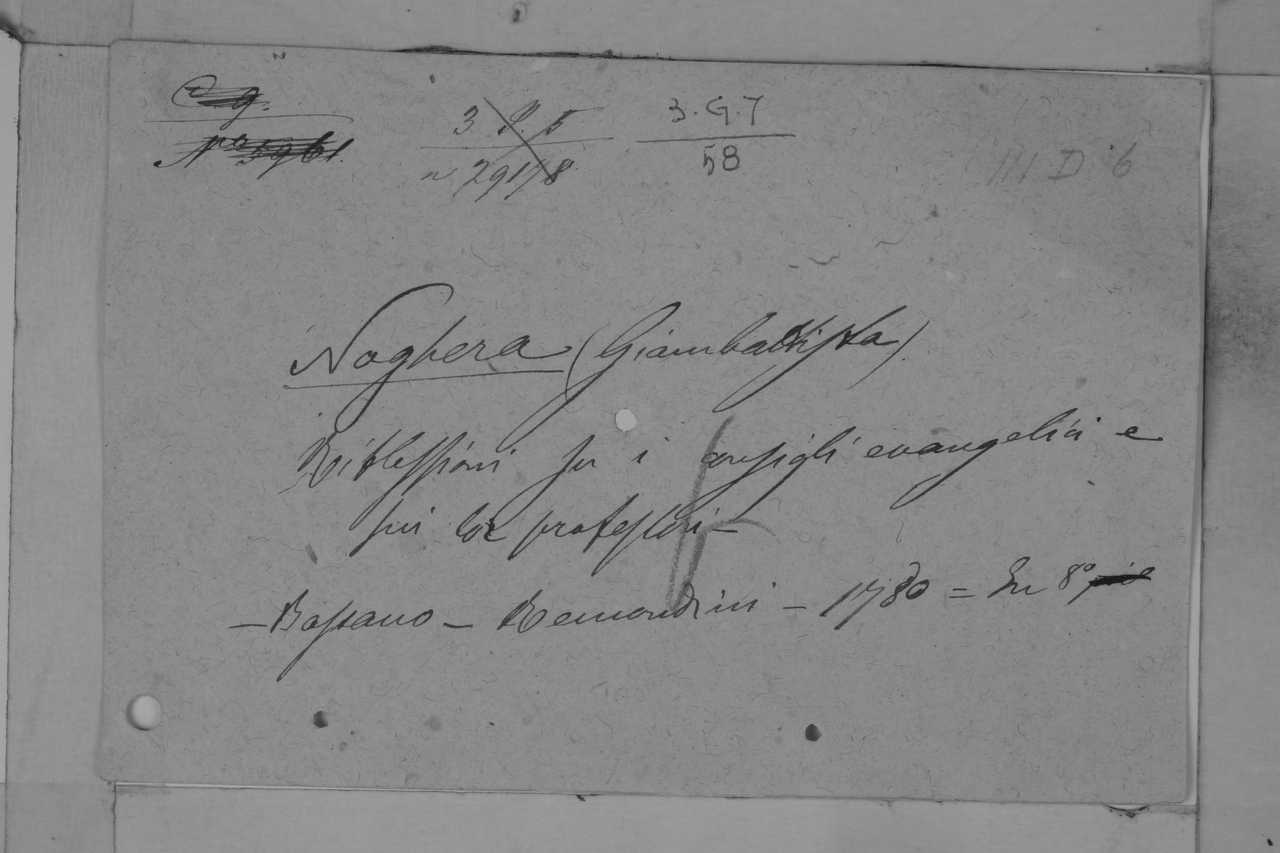 C g.
N° 5961.
3 P. 5
n 29178
3. G. 7
58
III D 6
Noghera (Giambattista)
Riflessioni su i consigli evangelici e
sui lor professori -
- Bassano - Remondini - 1780 = In 8°